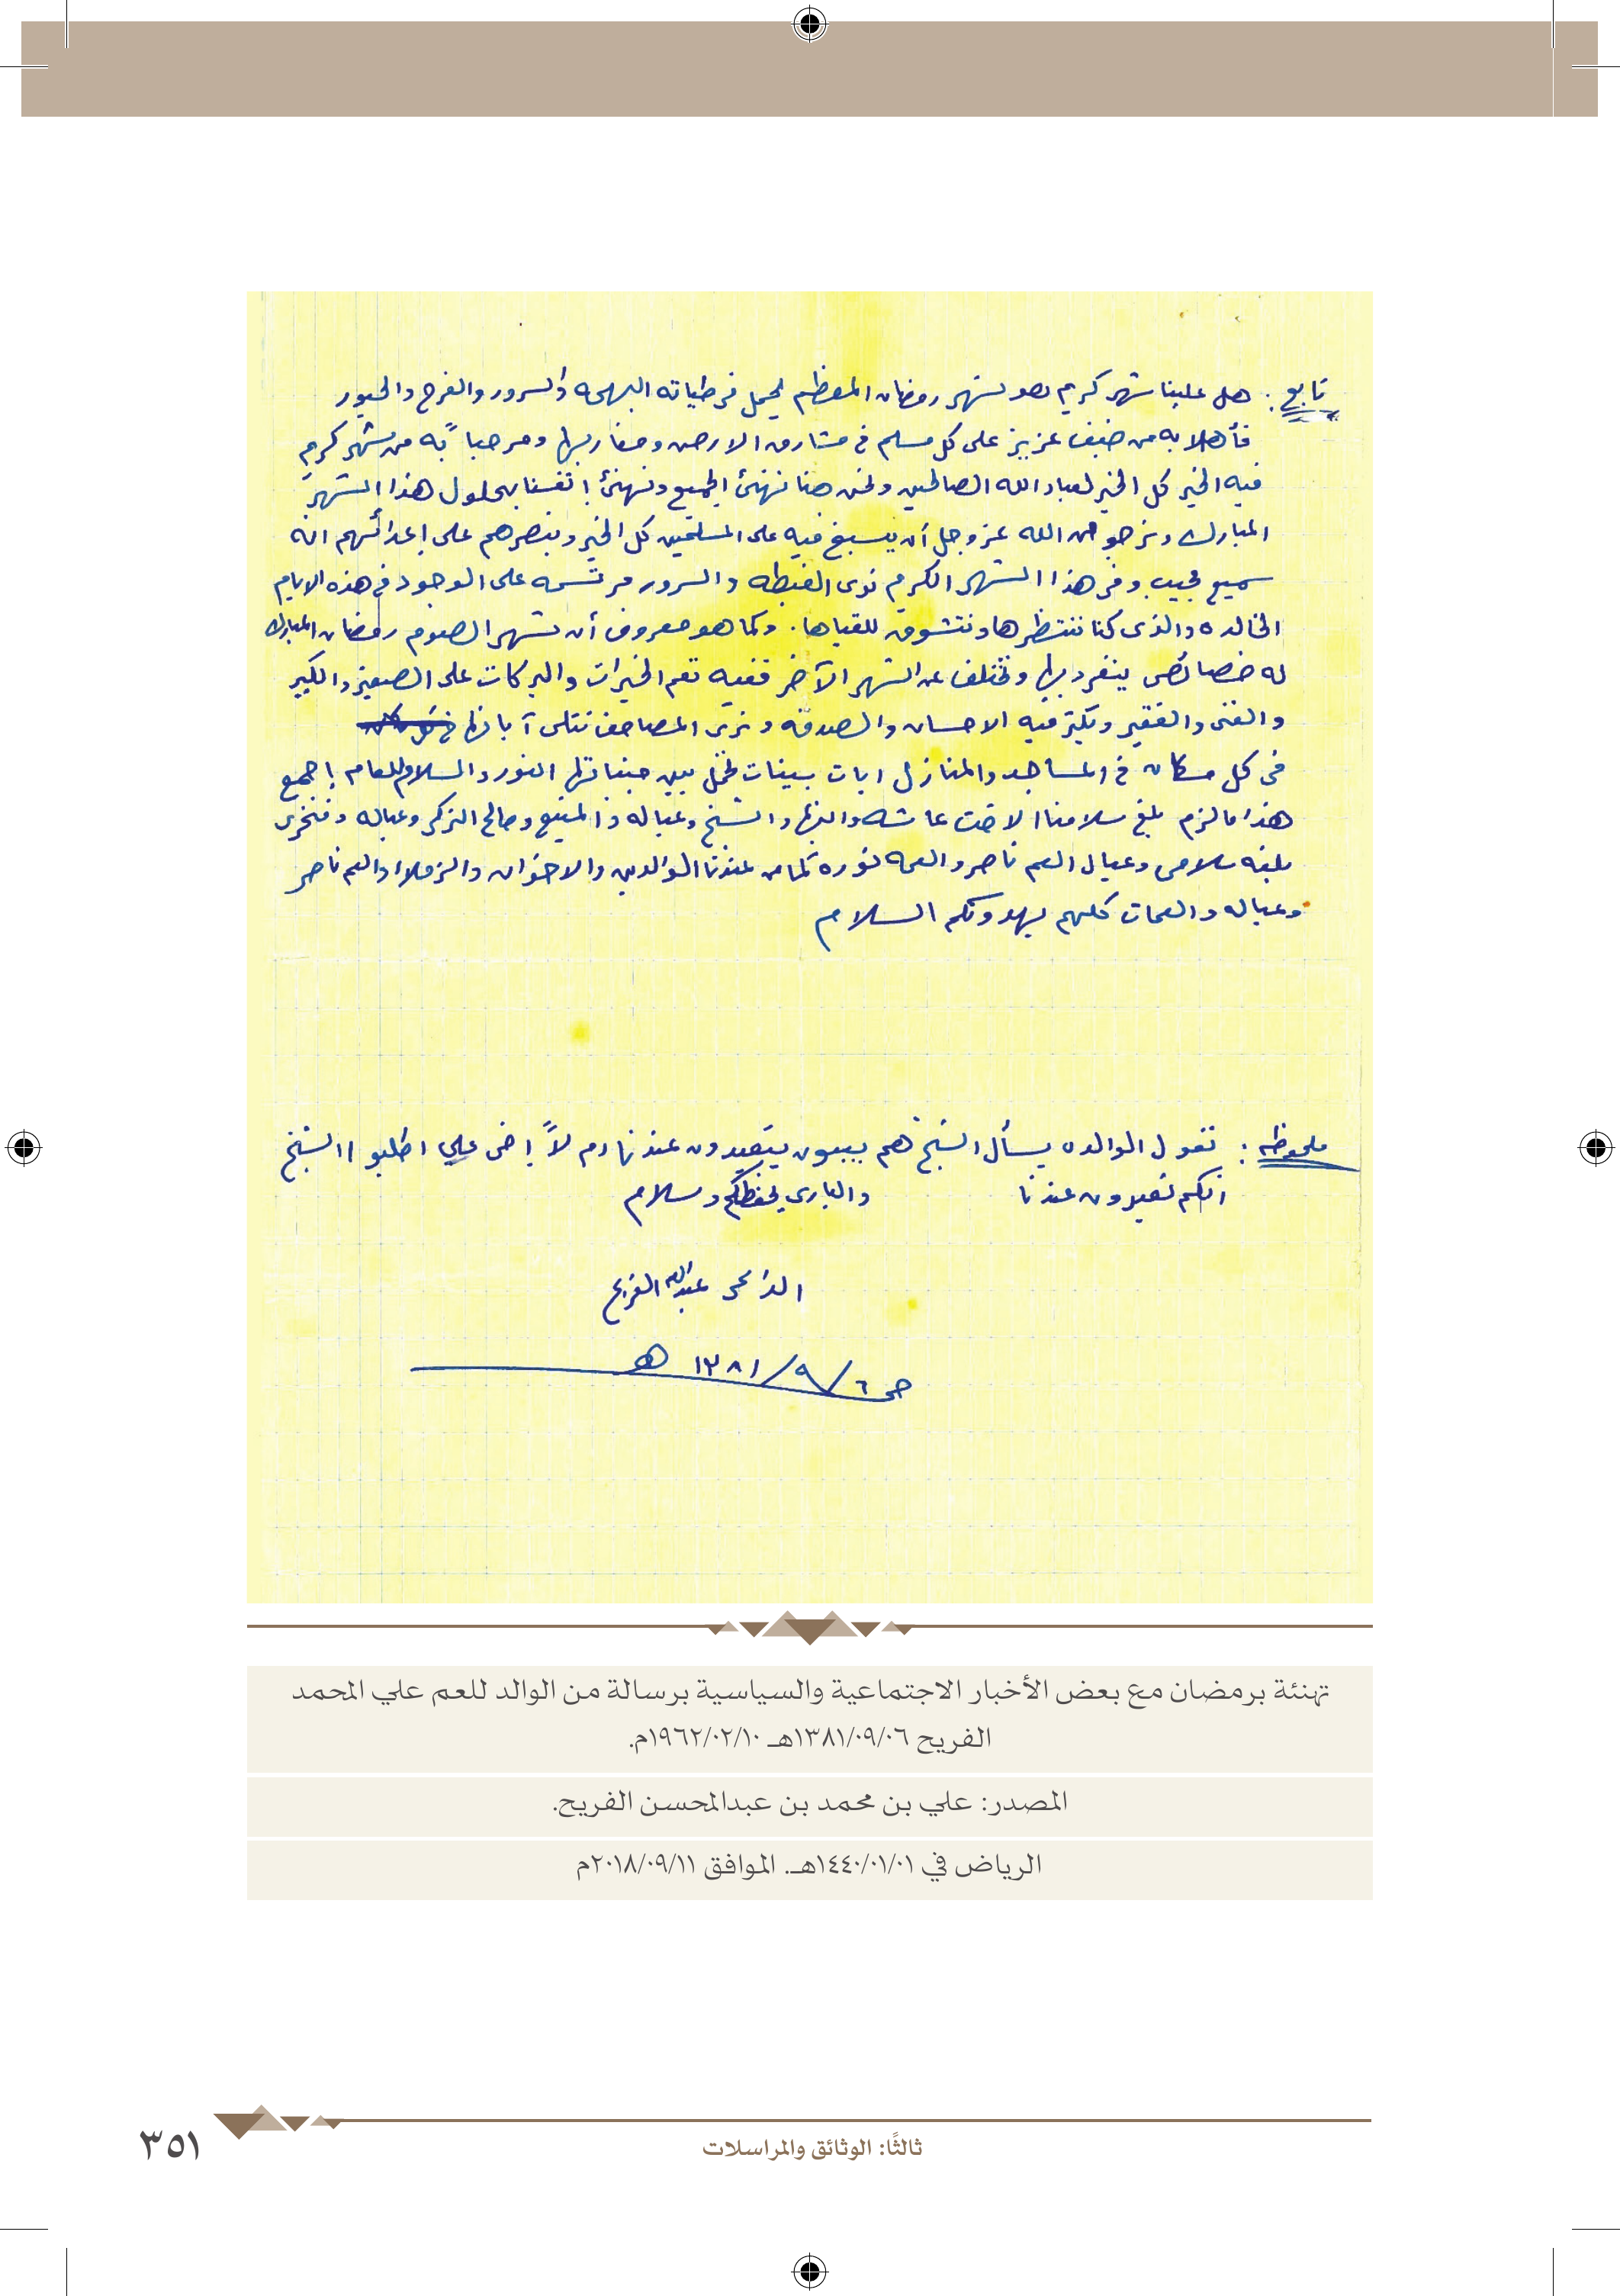 تابع : هل علينا شهر كريم هو شهر رمضان المعظم يحمل في طياته البهجه والسرور والفرح والحبور
فأهلا به من ضيف عزيز على كل مسلم في مشارق الارض ومغاربها ومرحباً به من شهر كريم
فيه الخير كل الخير لعباد الله الصالحين ونحن هنا نهنئ الجميع ونهنئ انفسنا بحلول هذا الشهر
المبارك ونرجو من الله عز وجل أن يسبغ فيه على المسلمين كل الخير وينصرهم على اعدائهم انه
سميع مجيب وفي هذا الشهر الكريم نرى الغبطه والسرور مرتسمه على الوجود في هذه الايام
الخالده والذى كنا ننتظرها ونتشوق للقياها . وكما هو معروف أن شهر الصوم رمضان المبارك
له خصائص ينفرد بها وتختلف عن الشهر الآخر ففيه تعم الخيرات والبركات على الصغير والكبير
والغنى والفقير ويكثر فيه الاحسان والصدقه ونرى المصاحف تتلى آياتها
فى كل مكان في المساجد والمنازل ايات بينات تحمل بين جنباتها النور والسلام للعام اجمع
هذا ما لزم بلغ سلامنا الاخت عائشه والشيخ وعياله والمنيع وصالح التركي وعياله
بلغه سلامى وعيال العم ناصر والعمه نوره كما من عندنا الوالدين والاخوان والزملاء والعم ناصر
وعياله والعمات كلهم يهدونكم السلام
ملحوظه : تقول الوالده يسأل الشيخ هم يبيون يقيدون عندنا ام لاً اخى علي اطلبوا الشيخ
انكم تقيدون عندنا والبارى يحفظكم وسلام
عبدالله الفريح
حى ٦/٩/١٣٨١ هـ
تهنئة برمضان مع بعض الأخبار الاجتماعية والسياسية برسالة من الوالد للعم علي المحمد
الفريح ١٣٨١/٠٩/٠٦هـ ١٩٦٢/٠٢/١٠م.
المصدر: علي بن محمد بن عبدالمحسن الفريح.
الرياض في ١٤٤٠/٠١/٠١هـ. الموافق ٢٠١٨/٠٩/١١م
ثالثًا: الوثائق والمراسلات
٣٥١